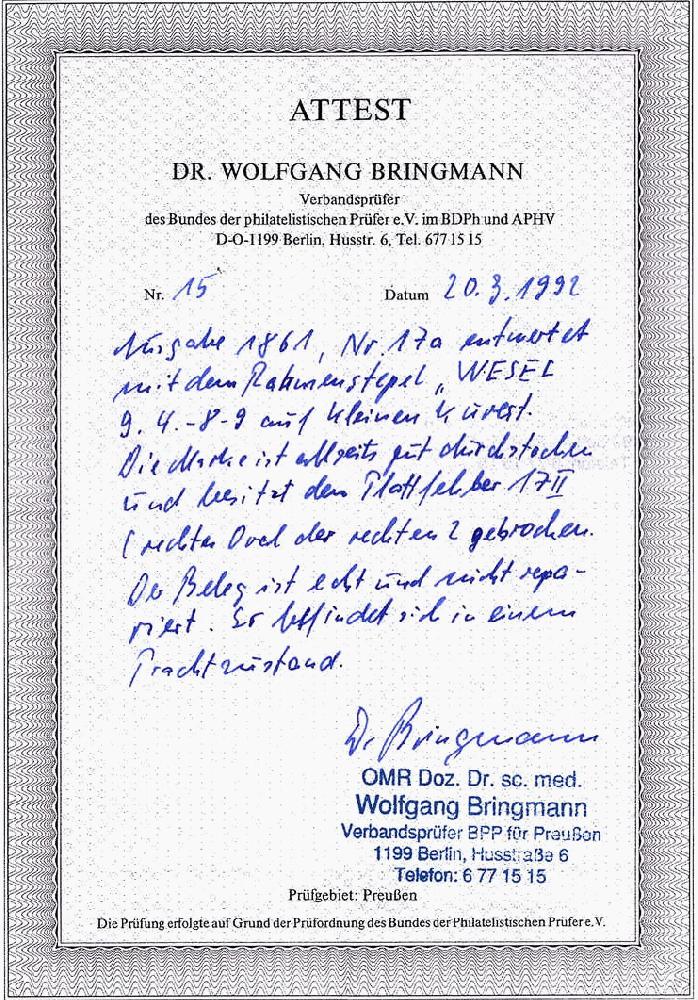 ATTEST
DR. WOLFGANG BRINGMANN
Verbandsprüfer
des Bundes der philatelistischen Prüfer e.V. im BDPh und APHV
D-O-1199 Berlin, Husstr. 6, Tel. 677 15 15
Nr. 15 Datum 20.3.1992
Ausgabe 1861, Nr. 17a entwertet
mit dem Rahmenstepel „WESEL
9. 4. - 8-9 auf kleinen Kuvert.
Die Marke ist allseits gut durchstochen
und besitzt den Plattfehler 17 II
(rechter Oval der rechten 2 gebrochen.
Der Beleg ist echt und nicht repa-
riert. Er befindet sich in einem
Prachtzustand.
Dr. Bringmann
OMR Doz. Dr. sc. med.
Wolfgang Bringmann
Verbandsprüfer BPP für Preußen
1199 Berlin, Husstraße 6
Telefon: 6 77 15 15
Prüfgebiet: Preußen
Die Prüfung erfolgte auf Grund der Prüfordnung des Bundes der Philatelistischen Prüfer e.V.